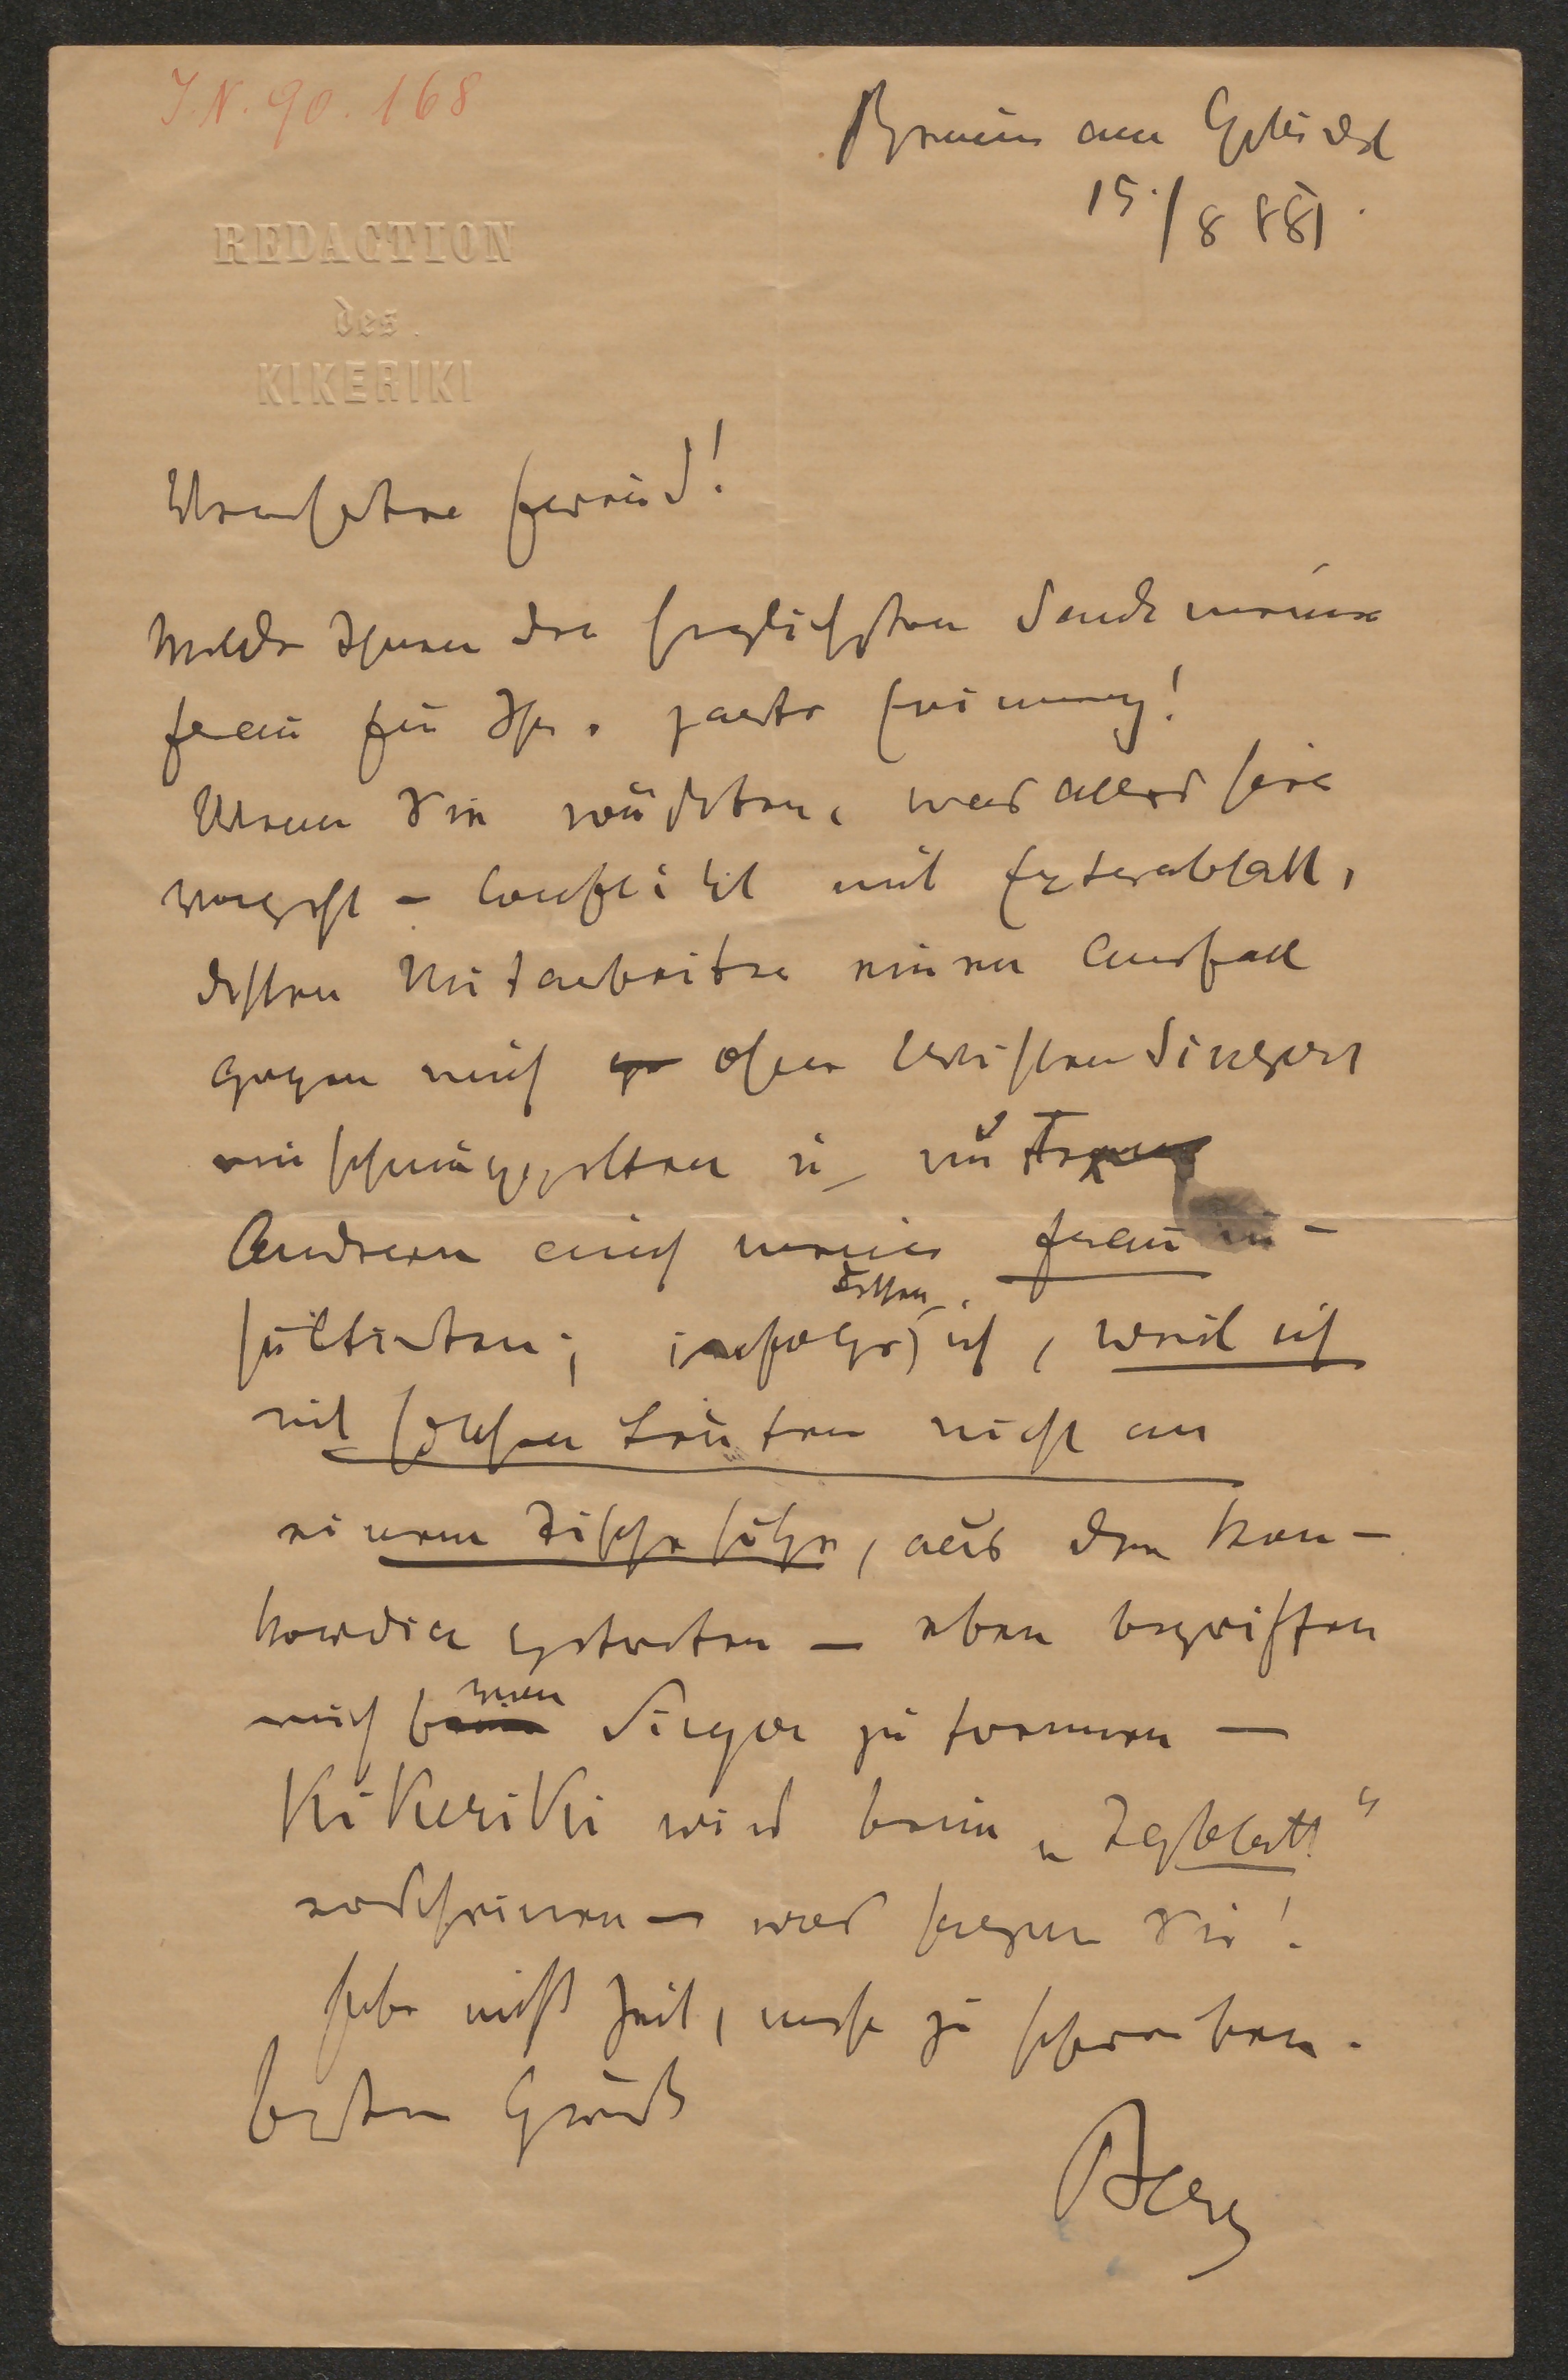 I.N. 90.168
Brunn am Gebirge
15./8 881.
REDACTION
des
KIKERIKI
Verehrter Freund!
Melde Ihnen den herzlichsten Dank meiner
Frau für Ihre zarte Erinnerung!
Wenn Sie wüßten, was alles hier
vorgeht – Conflikt mit Extrablatt,
dessen Mitarbeiter einen Ausfall
gegen mich ohne Wissen Singers
einschmuggelten u. unter
Anderem auch meine Frau in-
sultirten; infolge dessen ich, weil ich
mit solchen Leuten nicht an
einem Tische sitze, aus der Kon-
kordia getreten – eben begriffen
mich von Singer zu trennen –
Kikeriki wird beim „Tagblatt"
erscheinen – was sagen Sie!
Habe nicht Zeit, mehr zu schreiben.
Besten Gruß
Berg